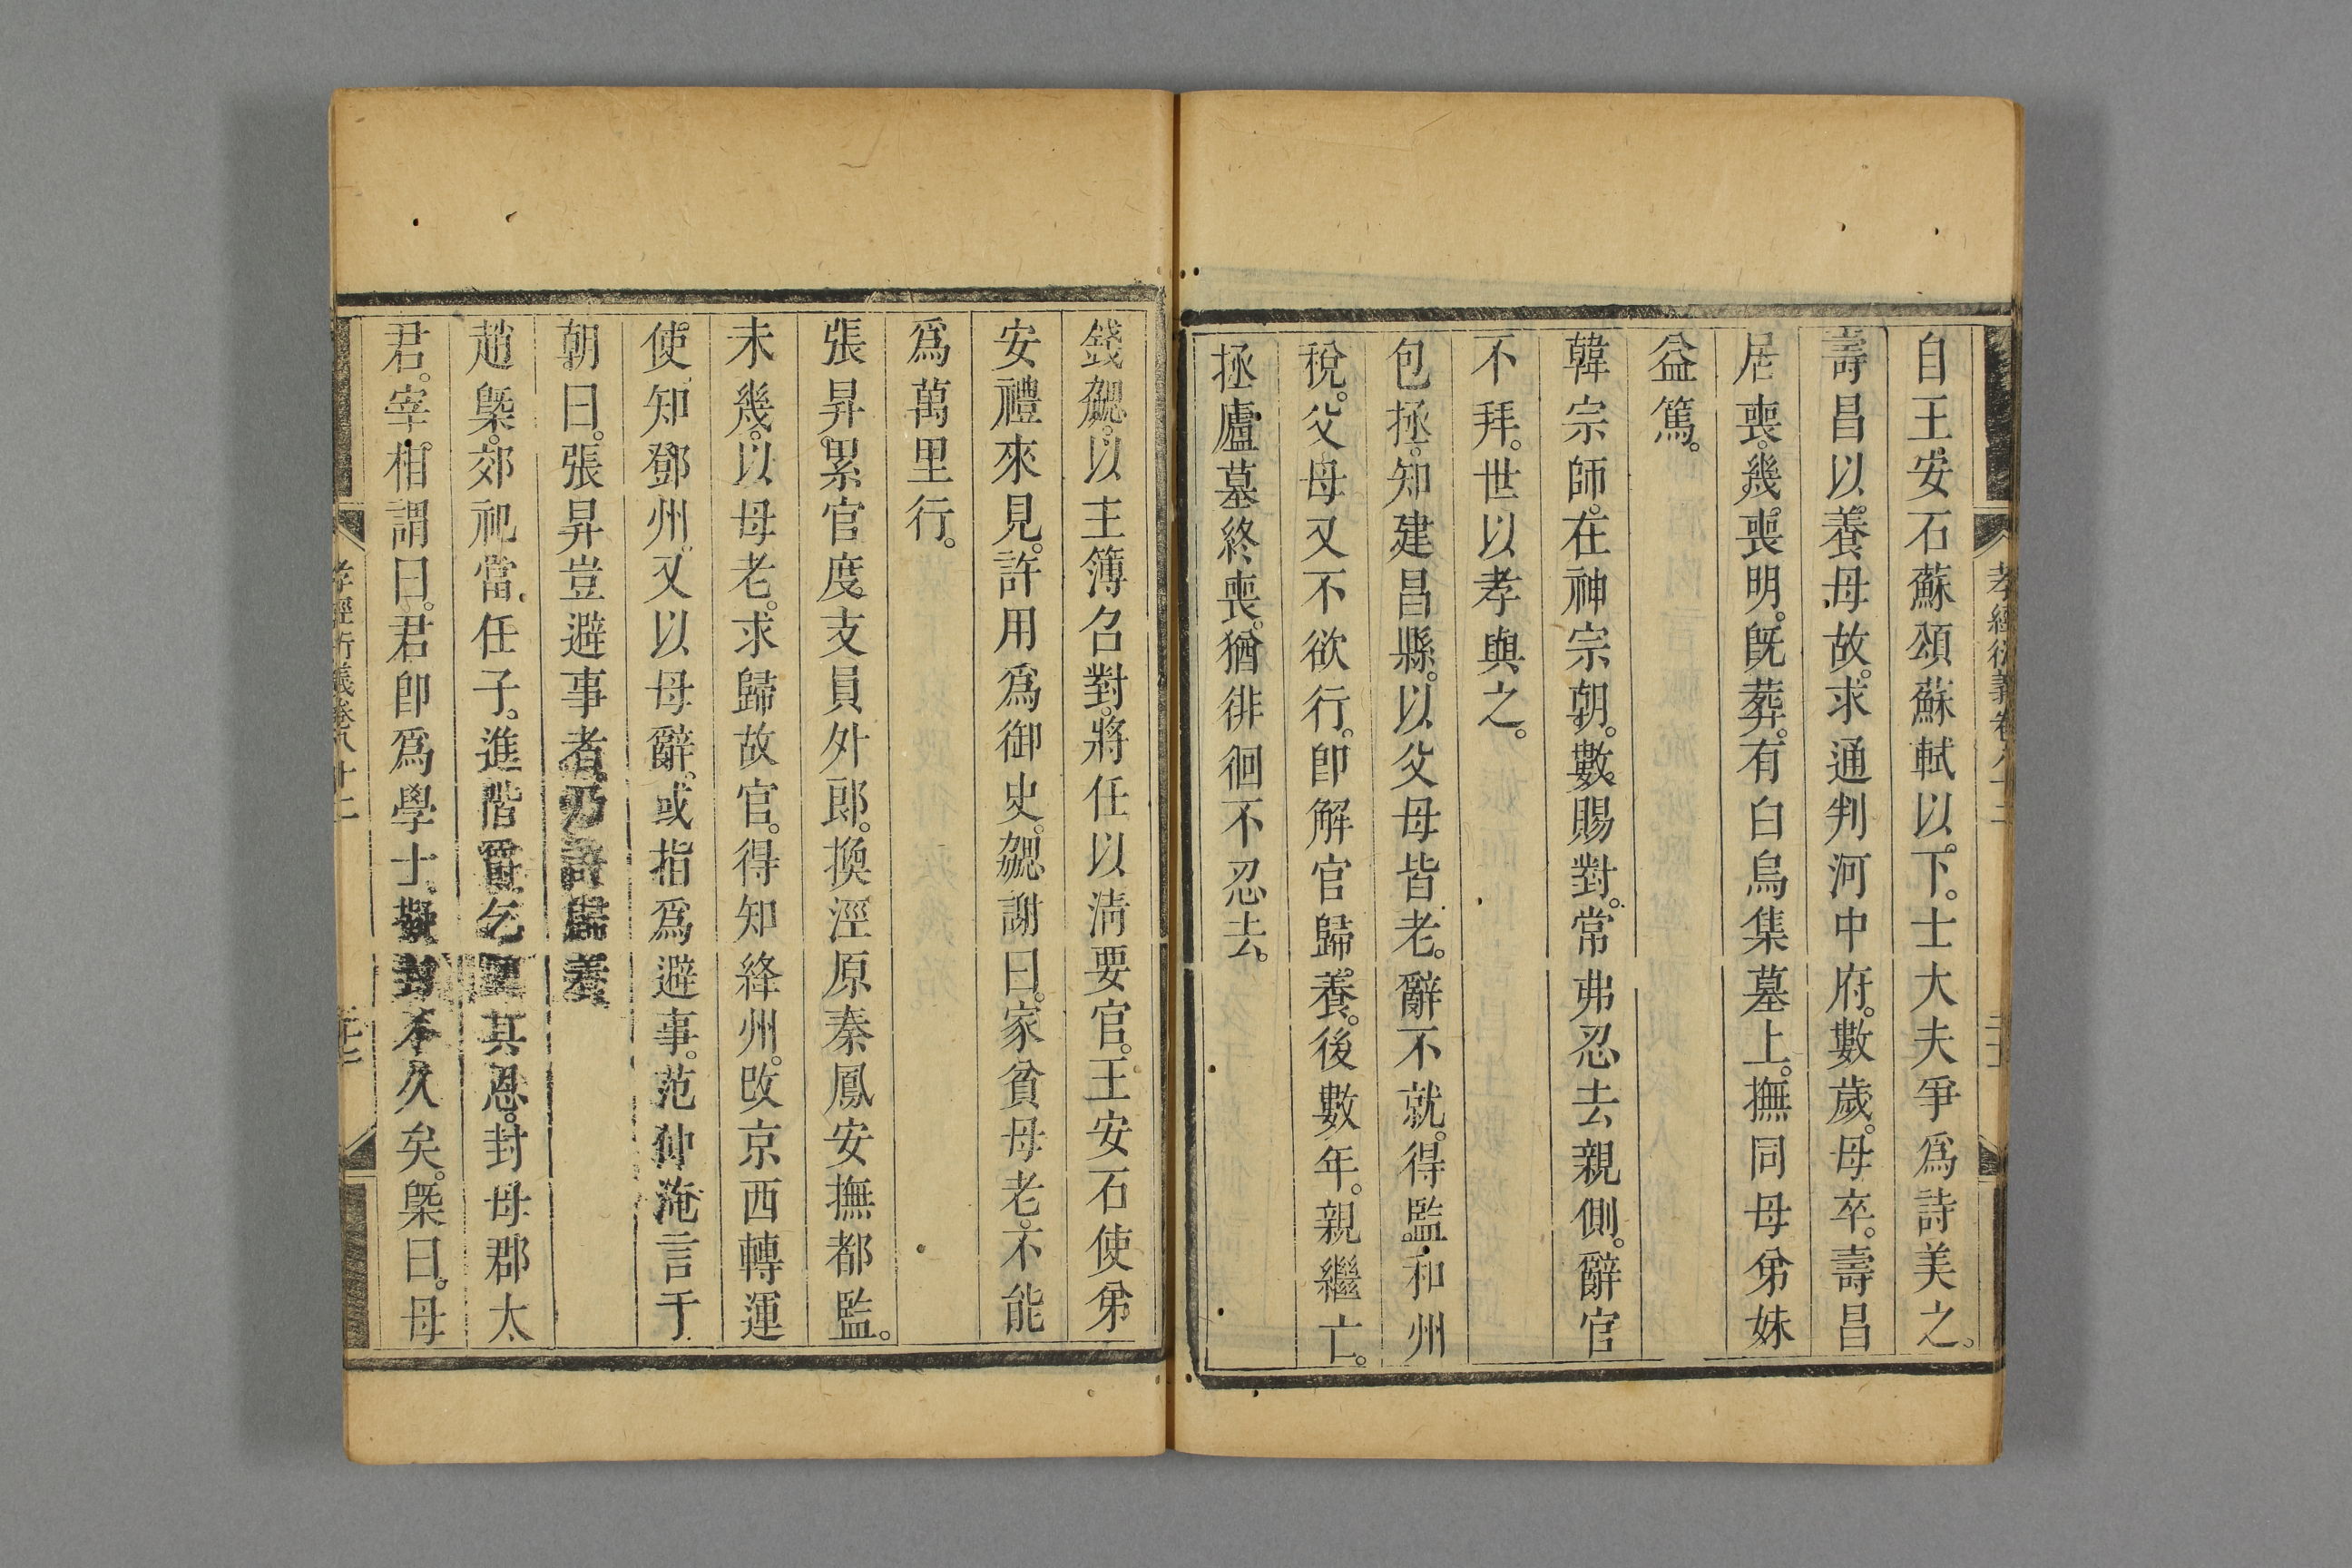 自王安石蘇頌蘇軾以下。士大夫爭爲詩美之。
壽昌以養母故。求通判河中府。數歲。母卒。壽昌
居喪。幾喪明。旣葬。有白烏集墓上。撫同母弟妹
益篤。
韓宗師。在神宗朝。數賜對。常弗忍去親側。辭官
不拜。世以孝與之。
包拯。知建昌縣。以父母皆老。辭不就。得監和州
稅。父母又不欲行。卽解官歸養。後數年。親繼亡。
拯廬墓終喪。猶徘徊不忍去。
孝經衍義卷八十二
錢勰。以主簿召對。將任以淸要官。王安石使弟
安禮來見。許用爲御史。勰謝曰。家貧母老。不能
爲萬里行。
張昇。累官度支員外郎。換涇原秦鳳安撫都監。
未幾。以母老。求歸故官。得知絳州。改京西轉運
使。知鄧州。又以母辭。或指爲避事。范仲淹言于
朝曰。張昇豈避事者。乃許歸養
趙槩。郊祀當任子。進階爵。乞其恩。封母郡太
君。宰相謂曰。君卽爲學士。擬封不久矣。槩曰。母
孝經衍義卷八十二